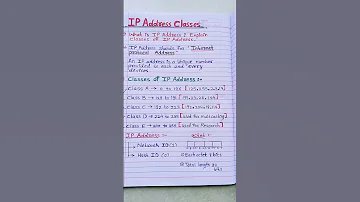 IP Address Classes
What is IP Address ? Explain
Classes of IP Address.
IP Address stands for "Internet
protocol Address"
An IP address is a unique number
provided to each and every
devices
Classes of IP Address :-
Class A → 0 to 126
Class B → 128 to 191
Class C → 192 to 223
Class D → 224 to 239 [used for multicasting]
Class E → 240 to 255 [used for Research]
IP Address :-
→ Network ID (1)
→ Host ID (0)
① Each octet 8 bits
② Total length 32
bits